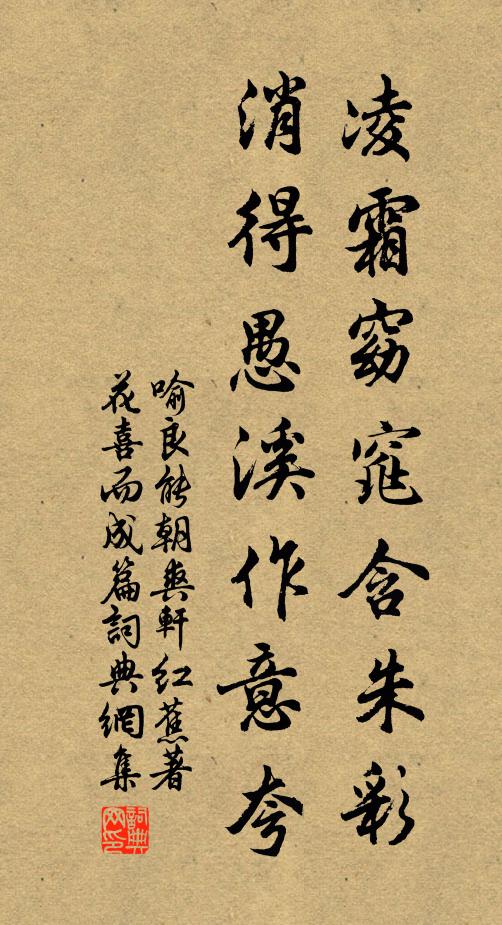 凌霜窈窕含朱彩
消得愚溪作意夸
喻良能朝爽軒红蕉著
花喜而成篇詞典網集
詞典
网印